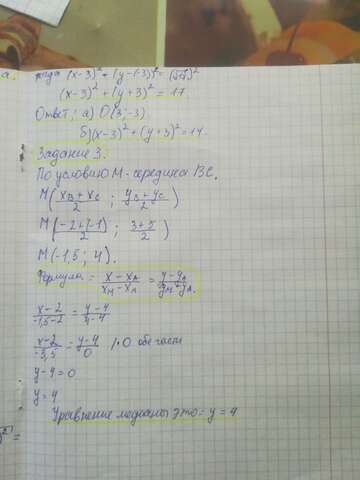 а.
тогда (x-3)² + (y-(-3))² = (√17)²
(x-3)² + (y+3)² = 17
Ответ: а) O(3;-3)
б) (x-3)² + (y+3)² = 17.
Задание 3.
По условию M - середина BC.
M((xB + xC)/2 ; (yB + yC)/2)
M((-2+(-1))/2 ; (3+5)/2)
M(-1,5 ; 4).
Формула = (x - xA)/(xM - xA) = (y - yA)/(yM - yA)
(x-2)/(-1,5-2) = (y-4)/(4-4)
(x-2)/(-3,5) = (y-4)/0 |·0 обе части
y-4=0
y=4
Уравнение медианы это = y = 4